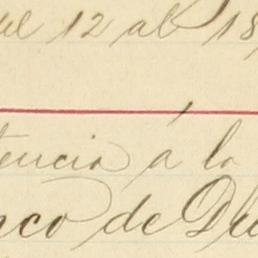 del 12 al 18
tencia á la
nco de